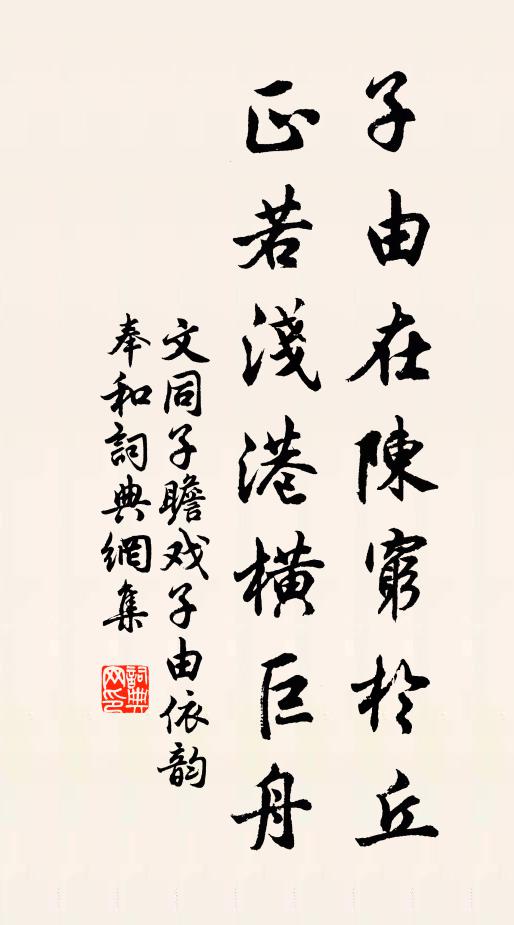 子由在陳窮於丘
正若淺港橫巨舟
文同子瞻戏子由依韵
奉和詞典網集
詞典网印